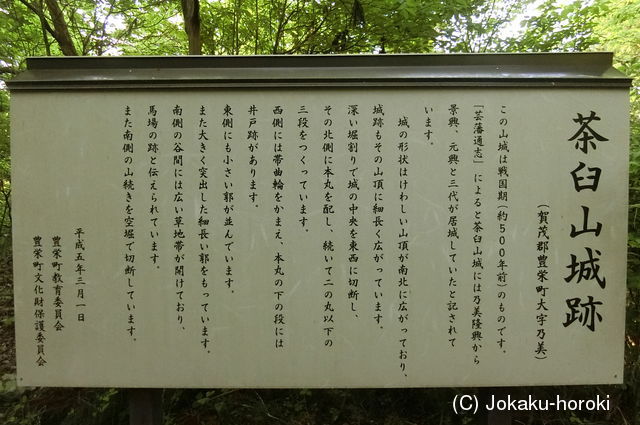 茶臼山城跡
（賀茂郡豊栄町大字乃美）
この山城は戦国期（約500年前）のものです。
「芸藩通志」によると茶臼山城には乃美隆興から
景興、元興と三代が居城していたと記されて
います。
城の形状はけわしい山頂が南北に広がっており、
城跡もその山頂に細長く広がっています。
深い堀割りで城の中央を東西に切断し、
その北側に本丸を配し、続いて二の丸以下の
三段をつくっています。
西側には帯曲輪をかまえ、本丸の下の段には
井戸跡があります。
東側にも小さい郭が並んでいます。
また大きく突出した細長い郭をもっています。
南側の谷間には広い草地帯が開けており、
馬場の跡と伝えられています。
また南側の山続きを空堀で切断しています。
平成五年三月一日
豊栄町教育委員会
豊栄町文化財保護委員会
(C) Jokaku-horoki